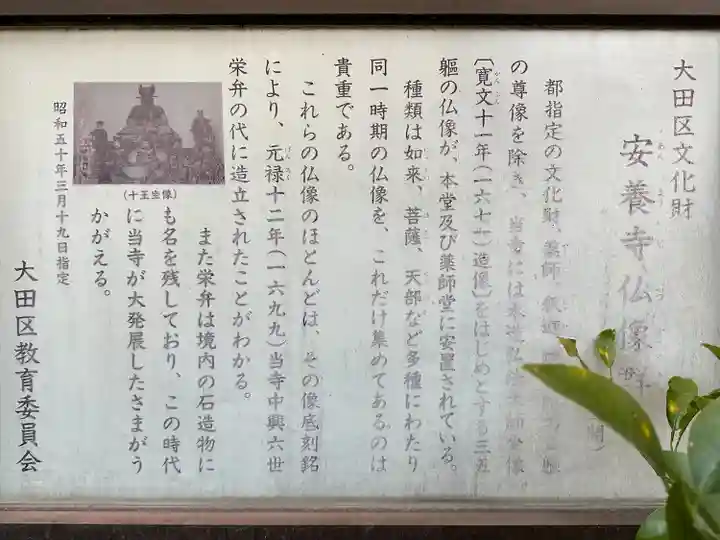 大田区文化財
安養寺仏像群
都指定の文化財、薬師、釈迦
の尊像を除き、当寺には木造弘法大師坐像
〔寛文十一年(一六七一)造像〕をはじめとする三五
軀の仏像が、本堂及び薬師堂に安置されている。
種類は如来、菩薩、天部など多種にわたり
同一時期の仏像を、これだけ集めてあるのは
貴重である。
これらの仏像のほとんどは、その像底刻銘
により、元禄十二年(一六九九)当寺中興六世
栄弁の代に造立されたことがわかる。
また栄弁は境内の石造物に
も名を残しており、この時代
に当寺が大発展したさまがう
かがえる。
(十王坐像)
昭和五十年三月十九日指定
大田区教育委員会